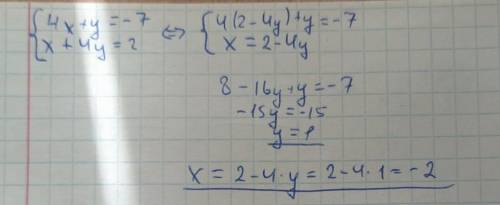 {4x+y=-7 <=> {4(2-4y)+y=-7
x+4y=2 x=2-4y
8-16y+y=-7
-15y=-15
y=1
x=2-4·y=2-4·1=-2